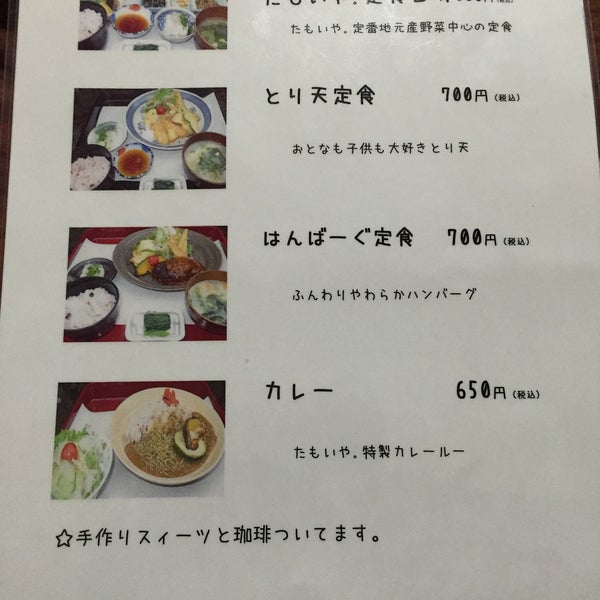 たもいや.定番地元産野菜中心の定食
とり天定食 700円(税込)
おとなも子供も大好きとり天
はんばーぐ定食 700円(税込)
ふんわりやわらかハンバーグ
カレー 650円(税込)
たもいや.特製カレールー
☆手作りスィーツと珈琲ついてます。